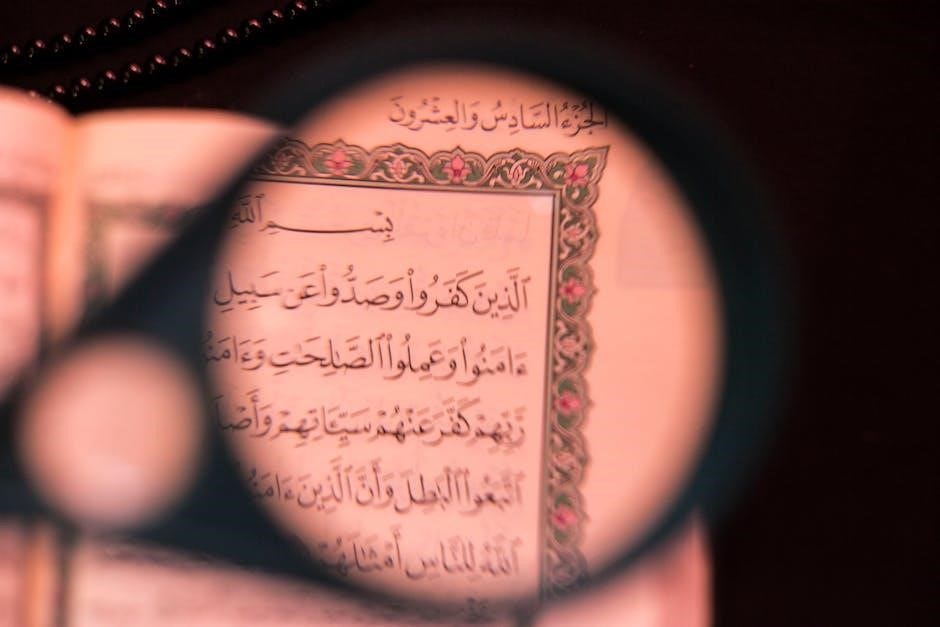 الجُزْءُ السَّادِسُ وَالعِشْرُونَ
بِسْمِ ٱللَّهِ
ٱلَّذِينَ كَفَرُوا۟ وَصَدُّوا۟ عَن سَبِيلِ
ءَامَنُوا۟ وَعَمِلُوا۟ ٱلصَّٰلِحَٰتِ وَءَامَنُ
رَّبِّهِمْ كَفَّرَ عَنْهُمْ سَيِّـَٔاتِهِمْ وَأَصْلَ
ٱتَّبَعُوا۟ ٱلْبَٰطِلَ وَأَنَّ ٱلَّذِينَ ءَامَنُ
ٱللَّهُ لِلنَّاسِ أَمْثَٰلَهُمْ